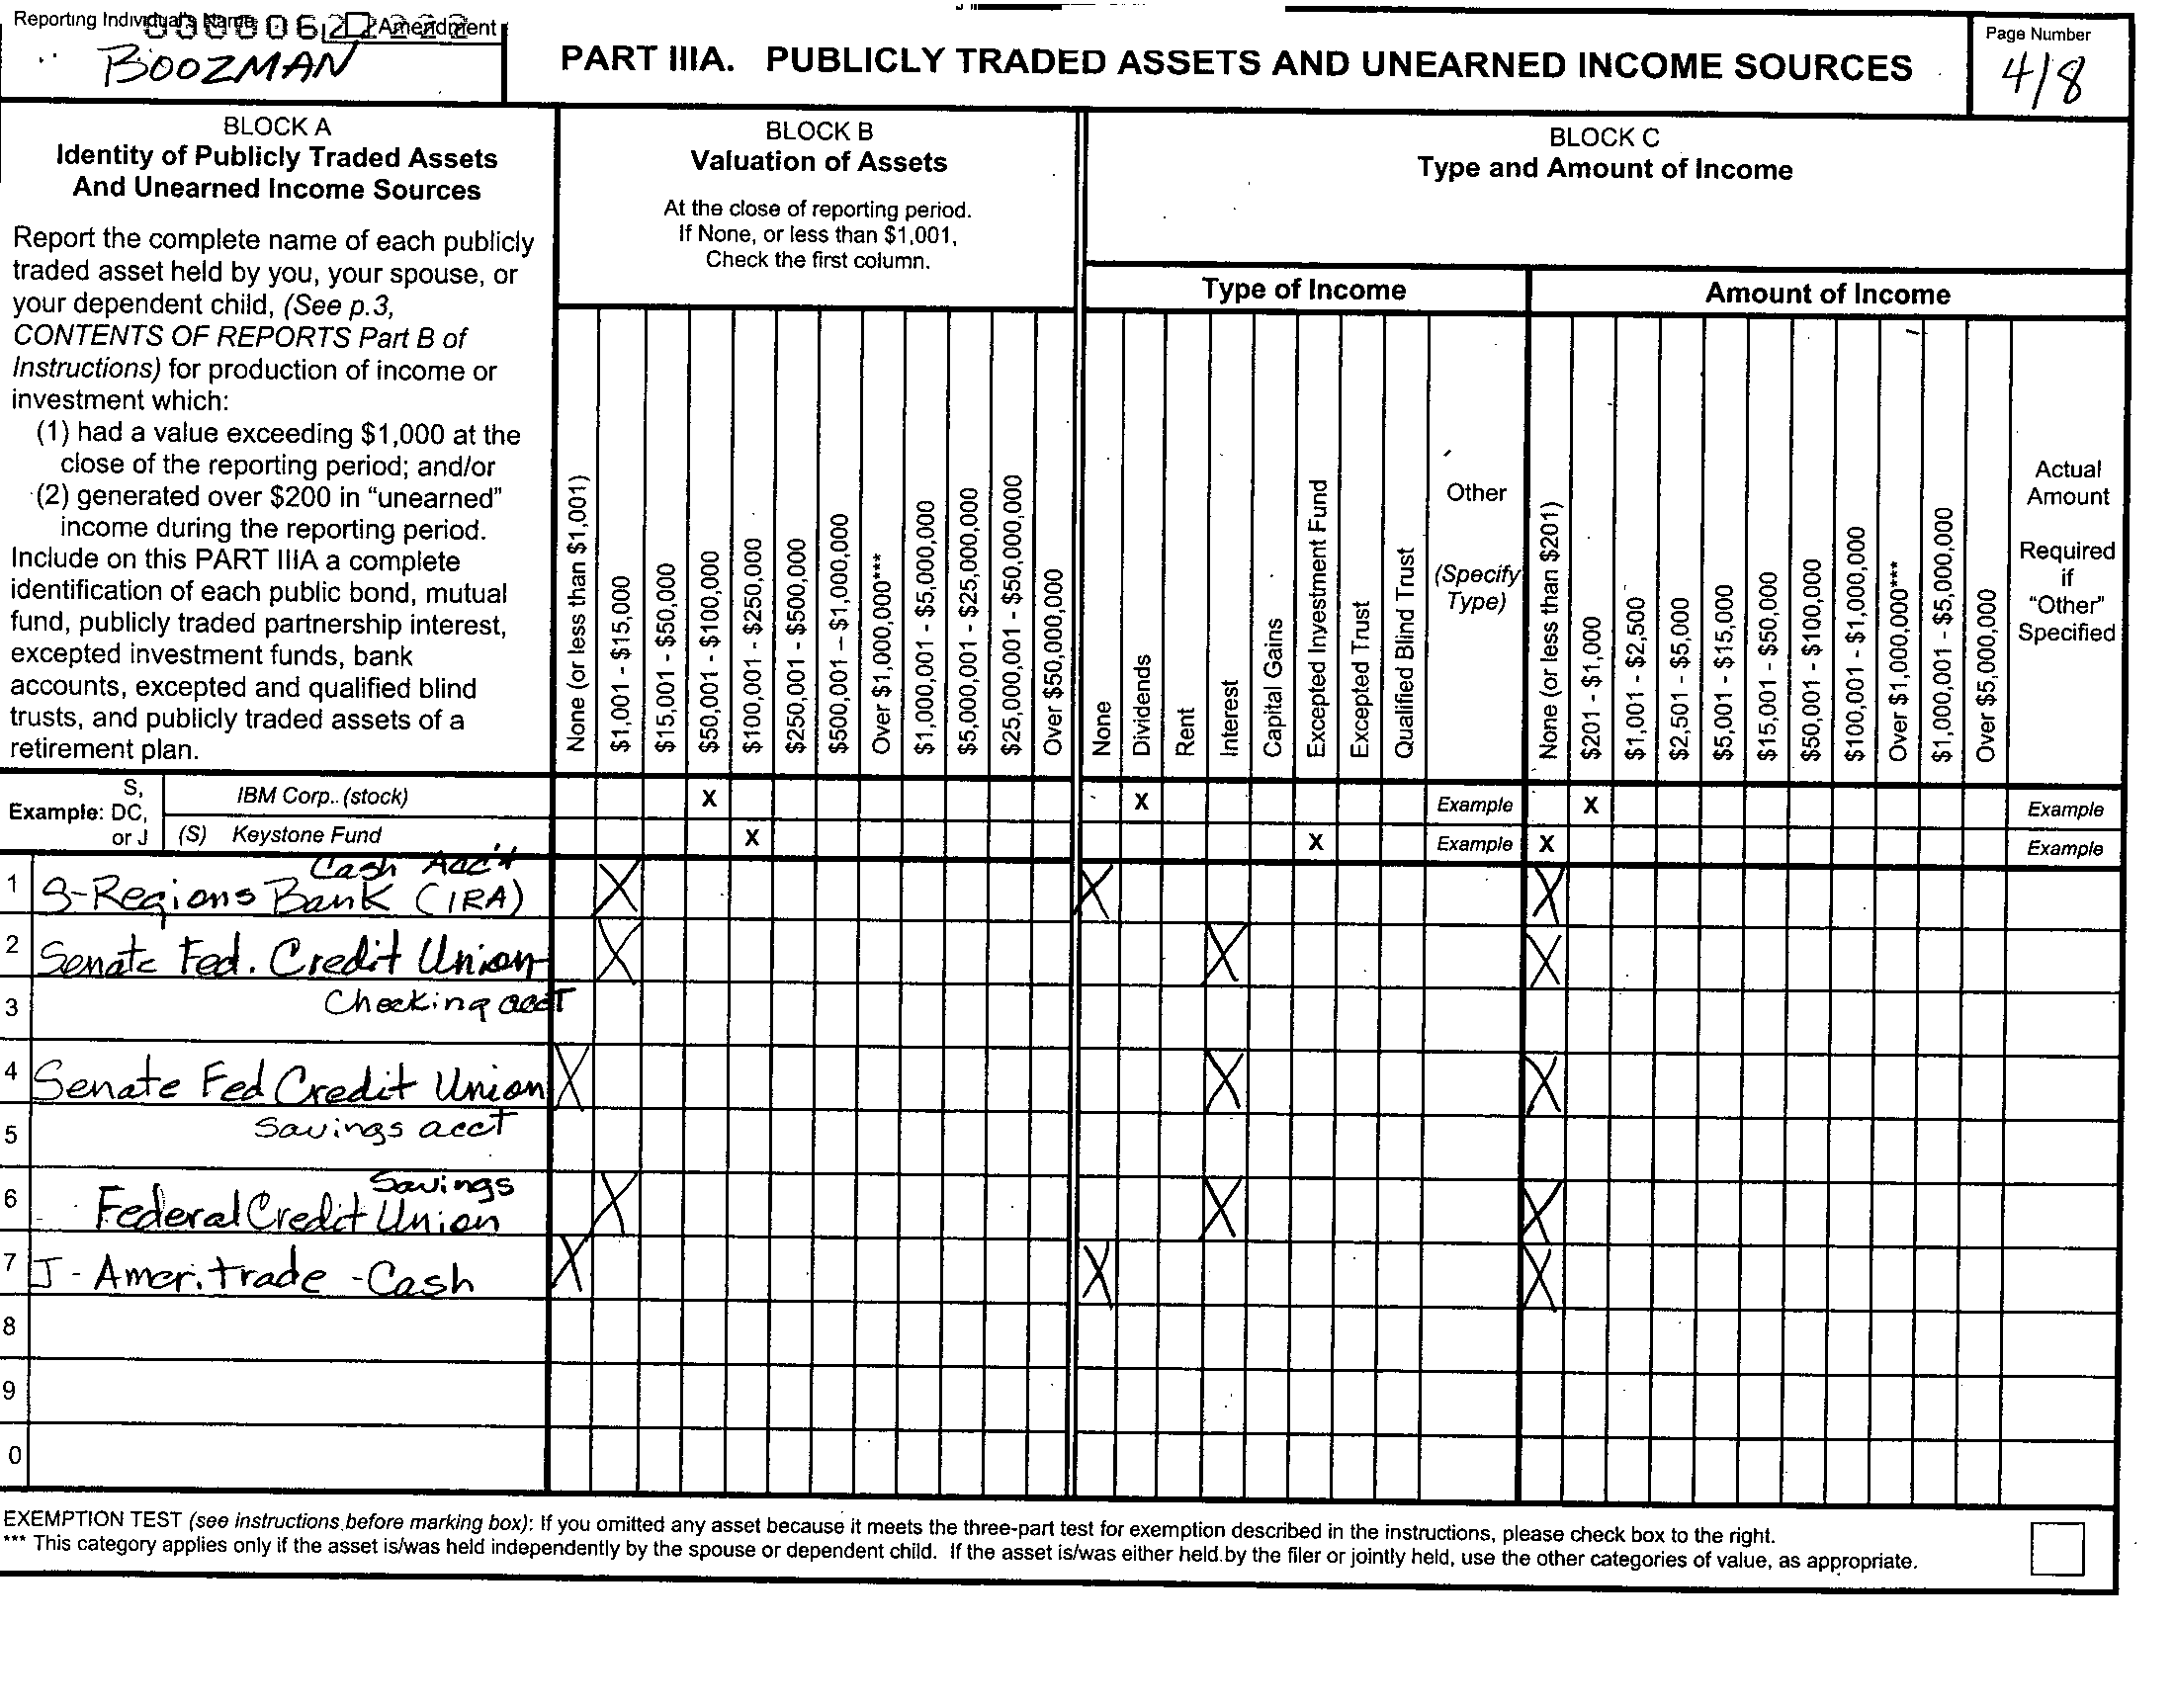 Reporting Individual's Name
Amendment
BOOZMAN
PART IIIA. PUBLICLY TRADED ASSETS AND UNEARNED INCOME SOURCES
Page Number
4/8
BLOCK A
Identity of Publicly Traded Assets
And Unearned Income Sources
Report the complete name of each publicly
traded asset held by you, your spouse, or
your dependent child, (See p.3,
CONTENTS OF REPORTS Part B of
Instructions) for production of income or
investment which:
(1) had a value exceeding $1,000 at the
close of the reporting period; and/or
(2) generated over $200 in “unearned”
income during the reporting period.
Include on this PART IIIA a complete
identification of each public bond, mutual
fund, publicly traded partnership interest,
excepted investment funds, bank
accounts, excepted and qualified blind
trusts, and publicly traded assets of a
retirement plan.
BLOCK B
Valuation of Assets
At the close of reporting period.
If None, or less than $1,001,
Check the first column.
None (or less than $1,001)
$1,001 - $15,000
$15,001 - $50,000
$50,001 - $100,000
$100,001 - $250,000
$250,001 - $500,000
$500,001 – $1,000,000
Over $1,000,000***
$1,000,001 - $5,000,000
$5,000,001 - $25,000,000
$25,000,001 - $50,000,000
Over $50,000,000
BLOCK C
Type and Amount of Income
Type of Income
None
Dividends
Rent
Interest
Capital Gains
Excepted Investment Fund
Excepted Trust
Qualified Blind Trust
Other
(Specify
Type)
Amount of Income
None (or less than $201)
$201 - $1,000
$1,001 - $2,500
$2,501 - $5,000
$5,001 - $15,000
$15,001 - $50,000
$50,001 - $100,000
$100,001 - $1,000,000
Over $1,000,000***
$1,000,001 - $5,000,000
Over $5,000,000
Actual
Amount
Required
if
“Other”
Specified
S,
Example: DC,
or J
IBM Corp.. (stock) X X Example X Example
(S) Keystone Fund X X Example X Example
Cash Acc't
1 S-Regions Bank (IRA) X X X
2 Senate Fed. Credit Union X X X
3 Checking accT
4 Senate Fed Credit Union X X X
5 Savings accT
Savings
6 Federal Credit Union X X X
7 J - Ameritrade - Cash X X X
8
9
0
EXEMPTION TEST (see instructions before marking box): If you omitted any asset because it meets the three-part test for exemption described in the instructions, please check box to the right.
*** This category applies only if the asset is/was held independently by the spouse or dependent child. If the asset is/was either held by the filer or jointly held, use the other categories of value, as appropriate.